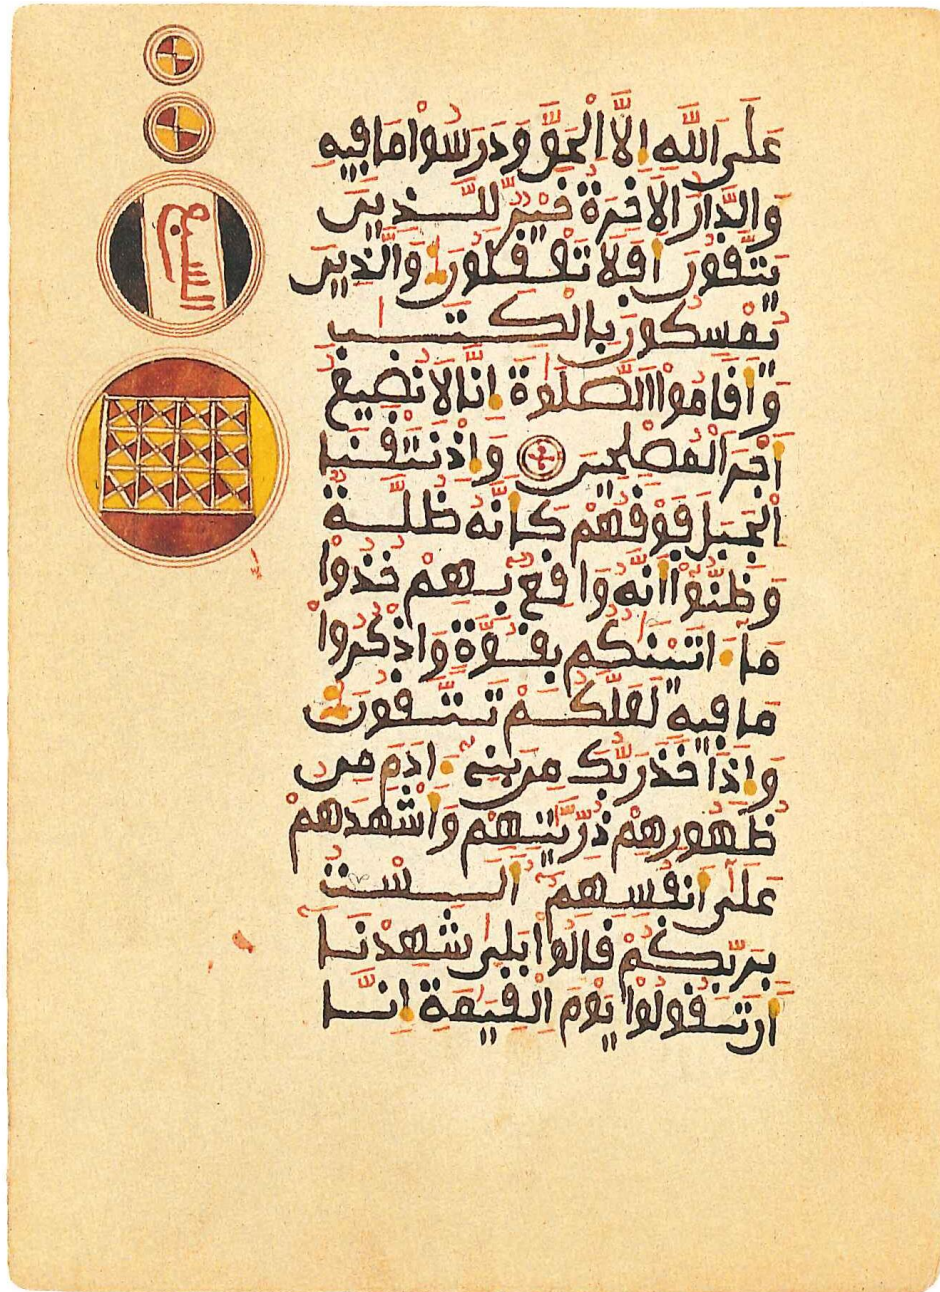 عَلَى اَللَّهِ إِلَّا اَلْحَقَّ وَدَرَسُوا مَا فِيهِ
وَالدَّارُ الَاخِرَةُ خَيْرٌ لِلَّذِينَ
يَتَّقُونَ أَفَلَا تَعْقِلُونَ وَالَّذِينَ
يُمَسِّكُونَ بِالْكِتَٰبِ
وَأَقَامُوا الصَّلَوٰةَ إِنَّا لَا نُضِيعُ
أَجْرَ الْمُصْلِحِينَ وَإِذْ نَتَقْنَا
الْجَبَلَ فَوْقَهُمْ كَأَنَّهُ ظُلَّةٌ
وَظَنُّوا أَنَّهُ وَاقِعٌ بِهِمْ خُذُوا
مَا ءَاتَيْنَٰكُم بِقُوَّةٍ وَاذْكُرُوا
مَا فِيهِ لَعَلَّكُمْ تَتَّقُونَ
وَإِذْ أَخَذَ رَبُّكَ مِنْ بَنِي ءَادَمَ مِن
ظُهُورِهِمْ ذُرِّيَّٰتِهِمْ وَأَشْهَدَهُمْ
عَلَى أَنفُسِهِمْ أَلَسْتُ
بِرَبِّكُمْ قَالُوا بَلَى شَهِدْنَا
أَن تَقُولُوا يَوْمَ الْقِيَٰمَةِ إِنَّا